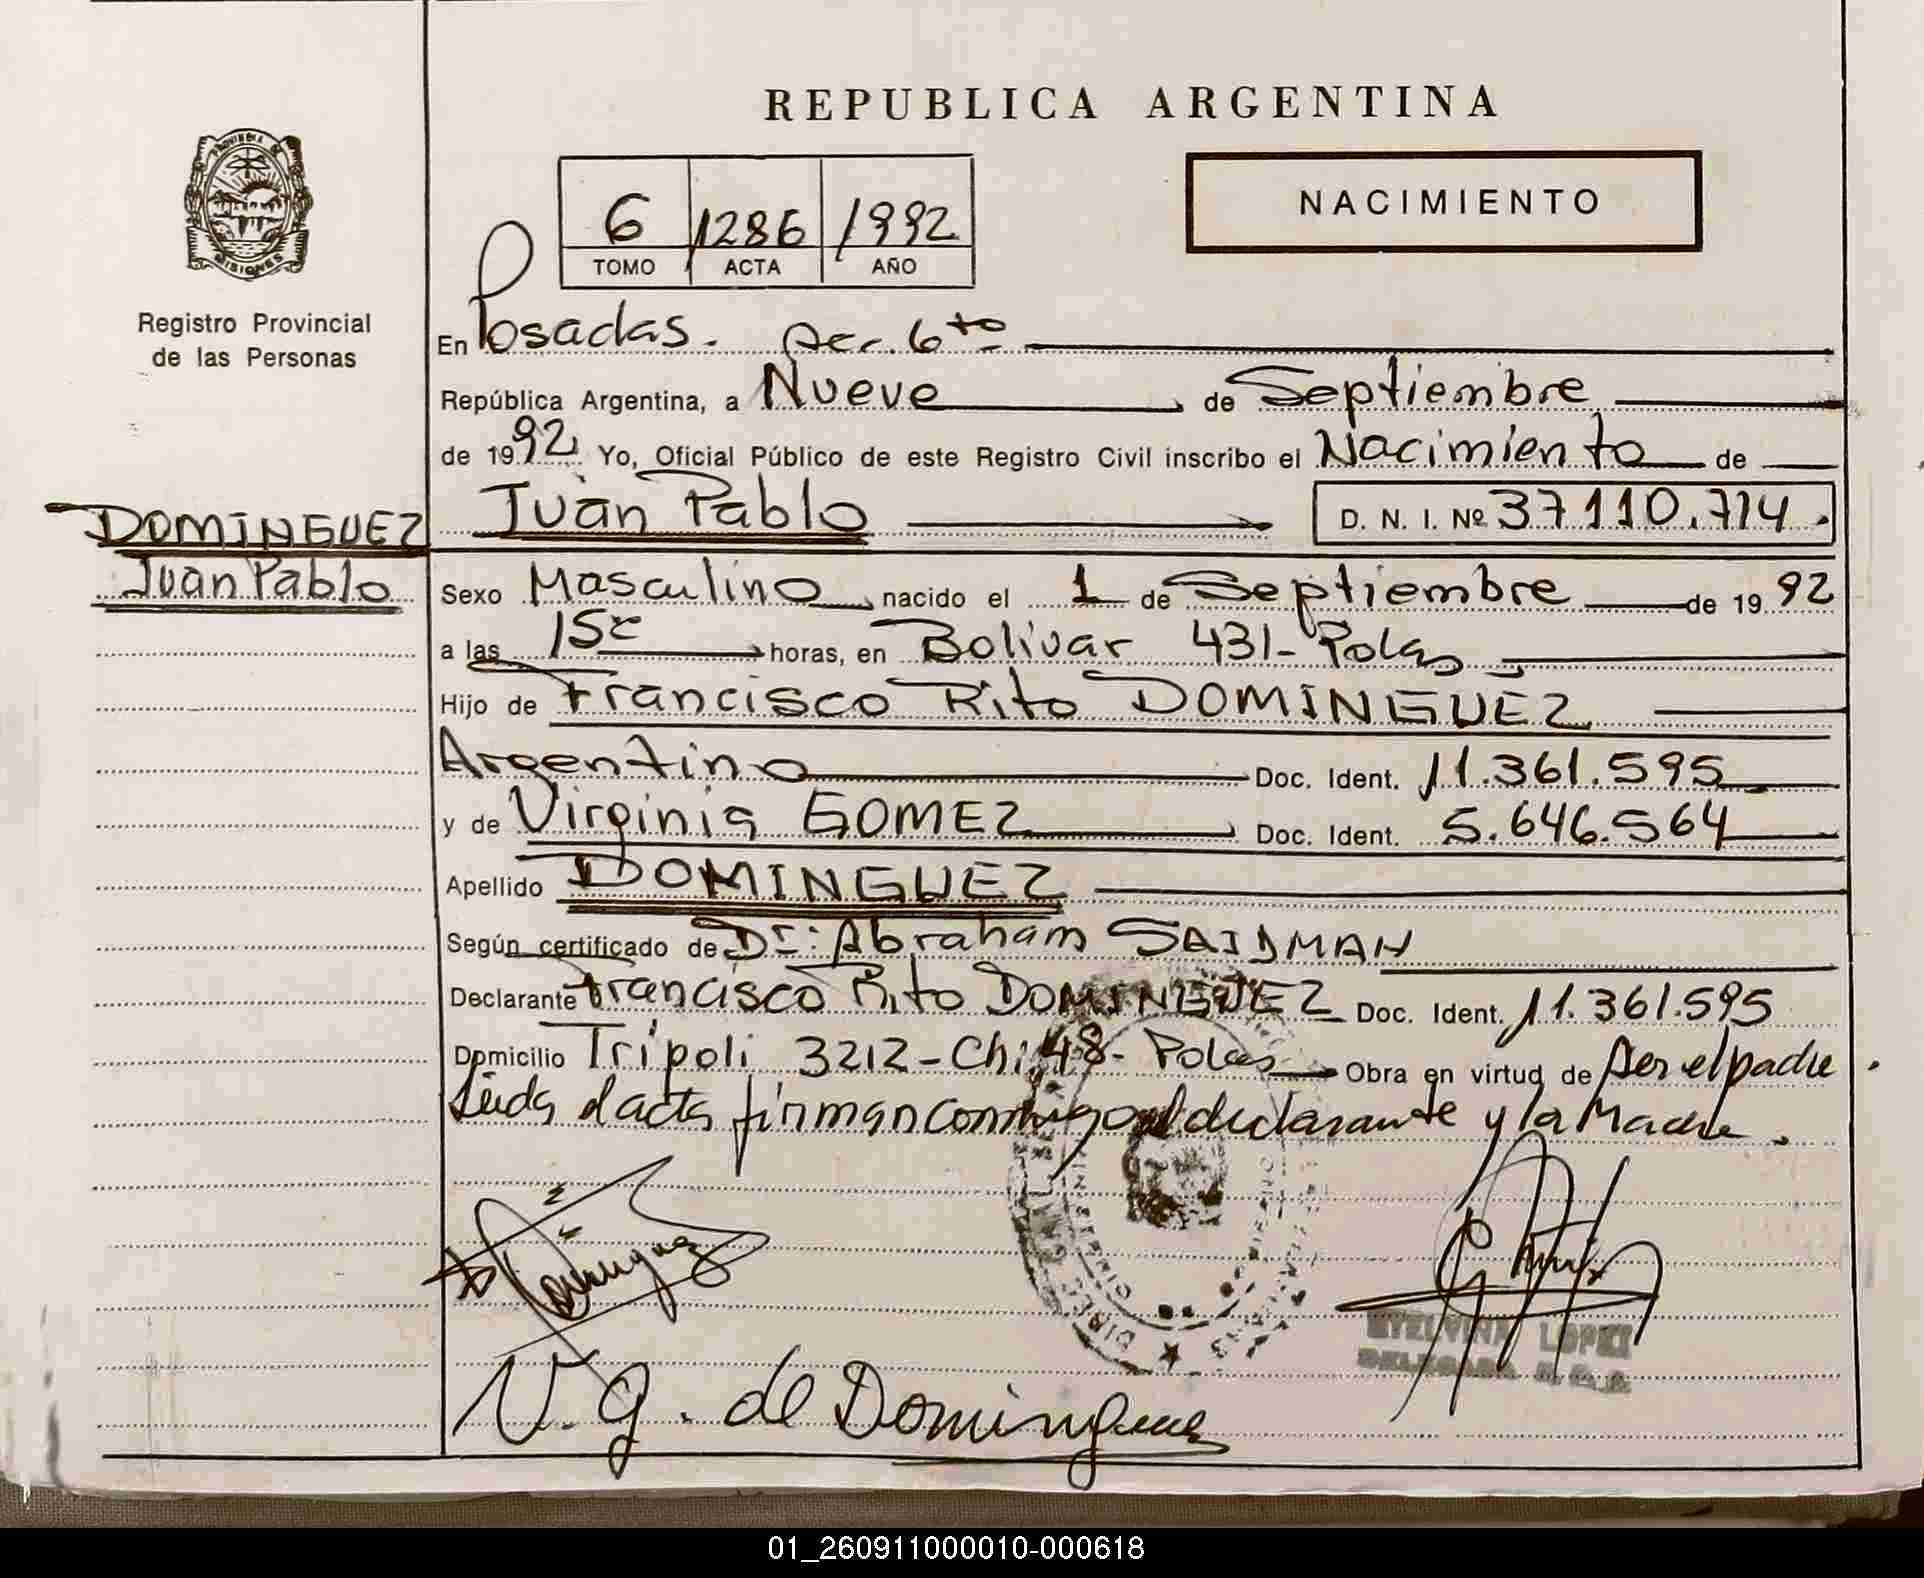 REPUBLICA ARGENTINA
NACIMIENTO
6 1286 1992
TOMO ACTA AÑO
MISIONES
Registro Provincial
de las Personas
En Posadas. Sec. 6to
República Argentina, a Nueve de Septiembre
de 1992 Yo, Oficial Público de este Registro Civil inscribo el Nacimiento de
Juan Pablo D. N. I. Nº 37110.714.
DOMINGUEZ
Juan Pablo
Sexo Masculino nacido el 1 de Septiembre de 1992
a las 15 horas, en Bolivar 431- Pdas
Hijo de Francisco Rito DOMINGUEZ
Argentino Doc. Ident. 11.361.595
y de Virginia GOMEZ Doc. Ident. 5.646.564
Apellido DOMINGUEZ
Según certificado de Dr: Abraham SAIDMAN
Declarante Francisco Rito DOMINGUEZ Doc. Ident. 11.361.595
Domicilio Tripoli 3212-Ch:48- Pdas Obra en virtud de ser el padre
Leida el acta firman conmigo el declarante y la Madre.
Dominguez
LOPEZ
V. G. de Dominguez
01_260911000010-000618